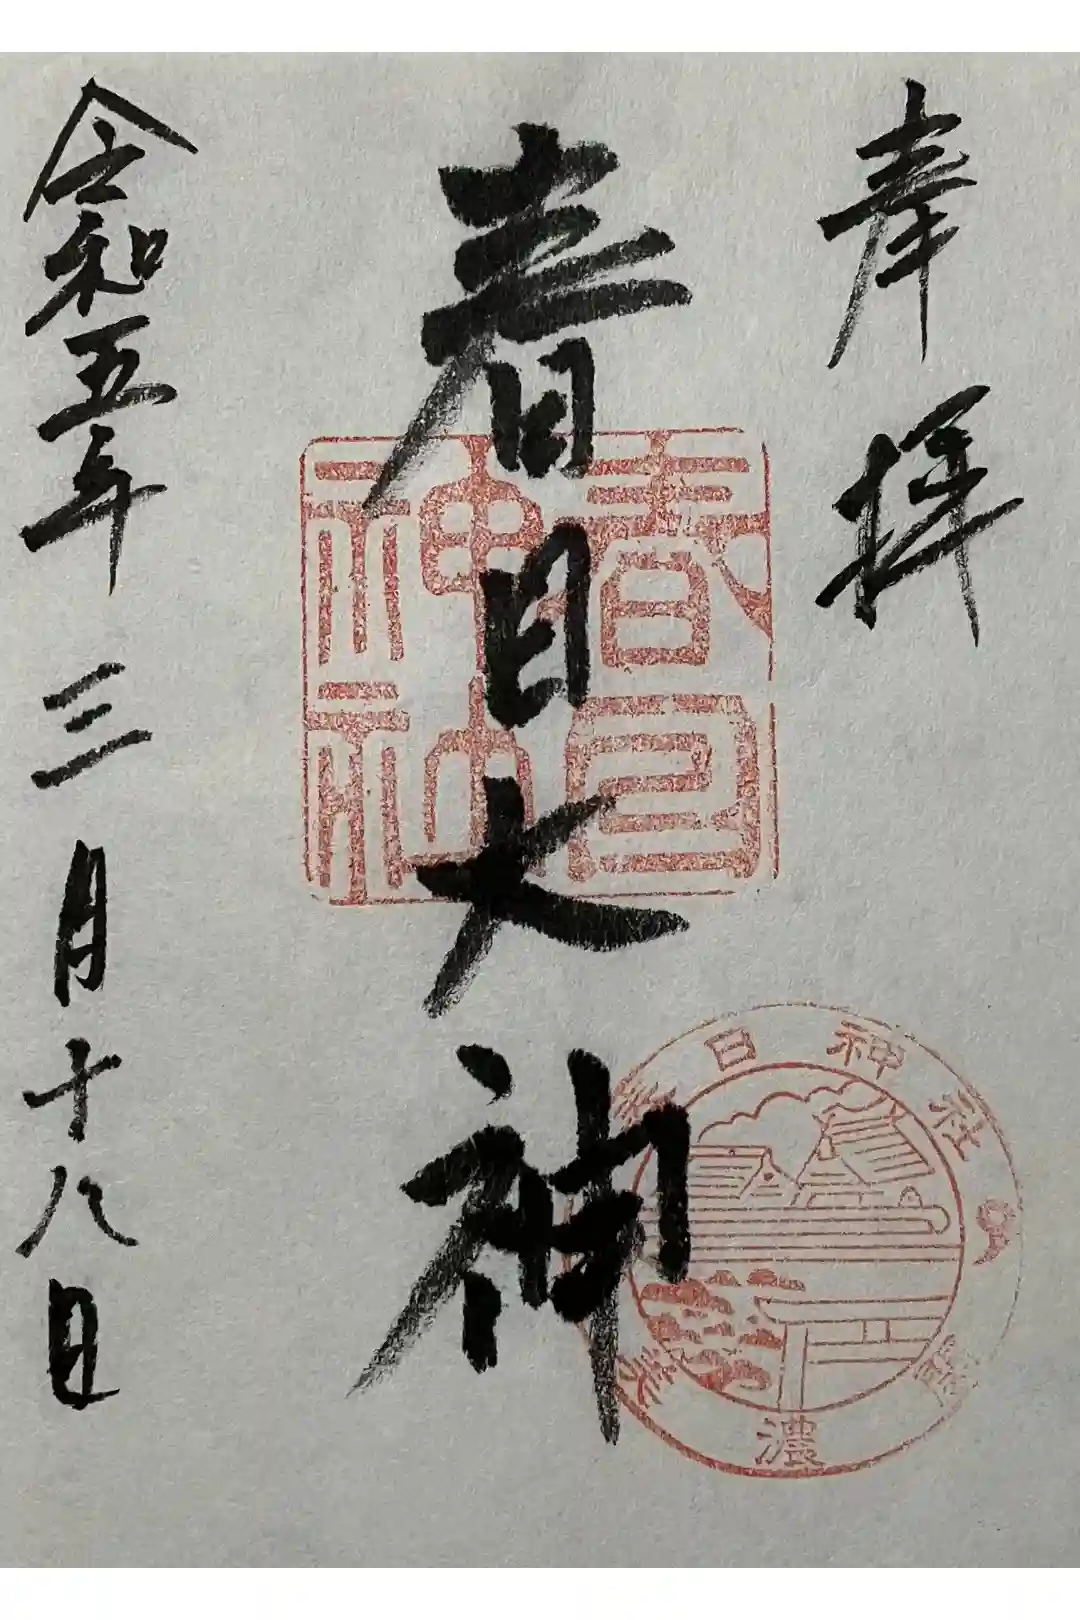 奉拝
春日大神
令和五年三月十八日
春日神社
春日神社
美濃